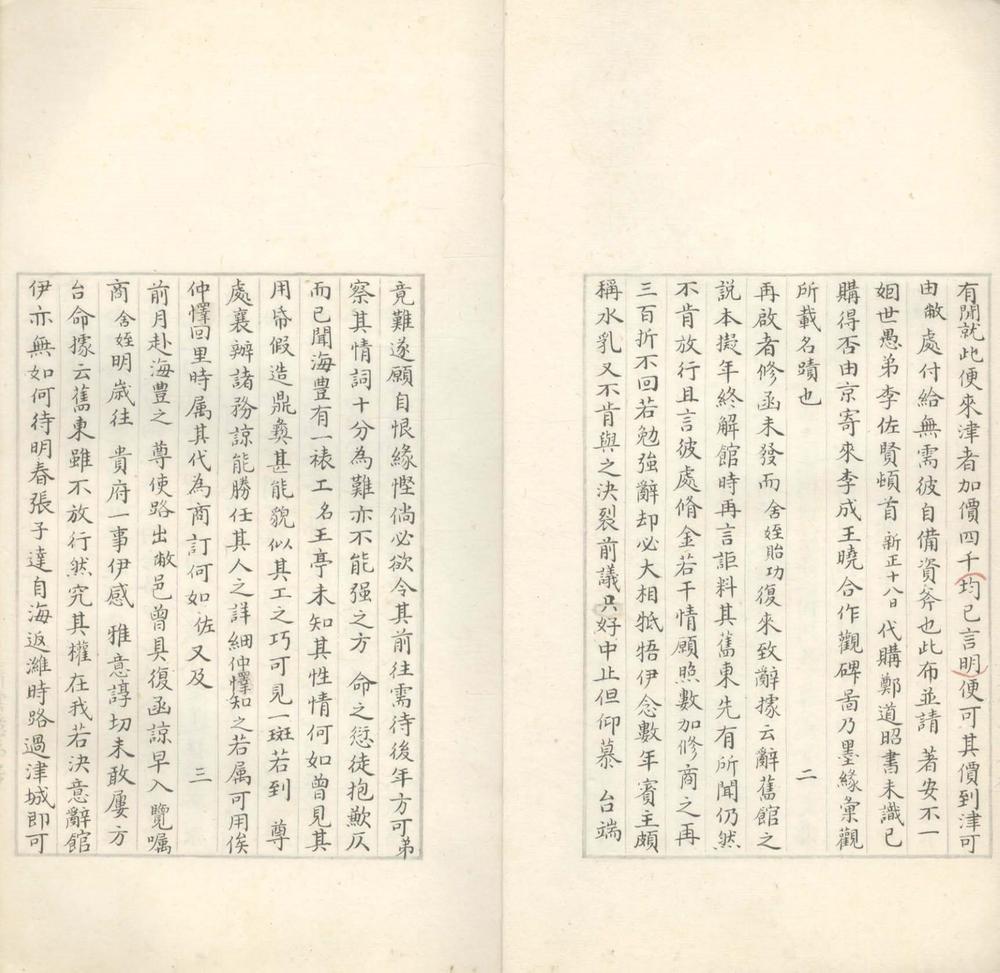 有閒就此便來津者加價四千均已言明便可其價到津可
由敝處付給無需彼自備資斧也此布並請 著安不一
姻世愚弟李佐賢頓首 新正十八日 代購鄭道昭書未識已
購得否由京寄來李成王曉合作觀碑啚乃墨緣彙觀
所載名蹟也 二
再啟者修函未發而舍姪貽功復來致辭據云辭舊館之
說本擬年終解館時再言詎料其舊東先有所聞仍然
不肯放行且言彼處脩金若干情願照數加修商之再
三百折不回若勉強辭却必大相牴牾伊念數年賓主頗
稱水乳又不肯與之決裂前議只好中止但仰慕 台端
竟難遂願自恨緣慳倘必欲令其前往需待後年方可弟
察其情詞十分為難亦不能强之方 命之愆徒抱歉仄
而已聞海豊有一裱工名王亭未知其性情何如曾見其
用帋假造鼎彝甚能貌似其工之巧可見一斑若到 尊
處襄辦諸務諒能勝任其人之詳細仲懌知之若属可用俟
仲懌回里時属其代為商訂何如 佐又及 三
前月赴海豊之 尊使路出敝邑曾具復函諒早入覽囑
商舍姪明歲往 貴府一事伊感 雅意諄切未敢屢方
台命據云舊東雖不放行然究其權在我若決意辭館
伊亦無如何待明春張子達自海返濰時路過津城即可